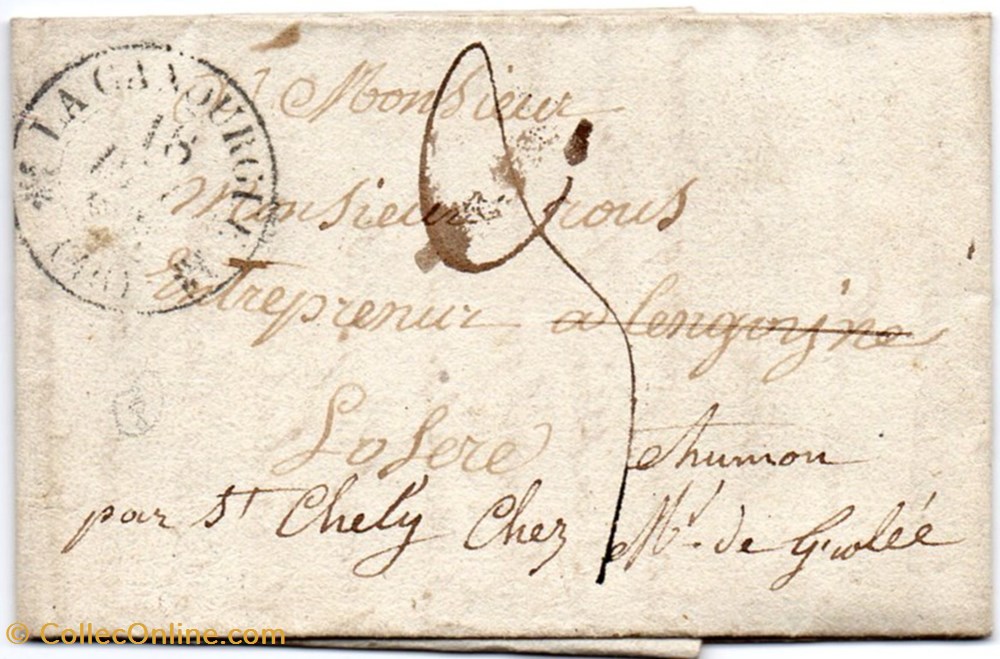 LA CANOURGUE
(46)
A Monsieur
Monsieur rous
Entreprenur a lengogne
Losere
par St Chely Chez Mr. de Grolée
© CollecOnline.com